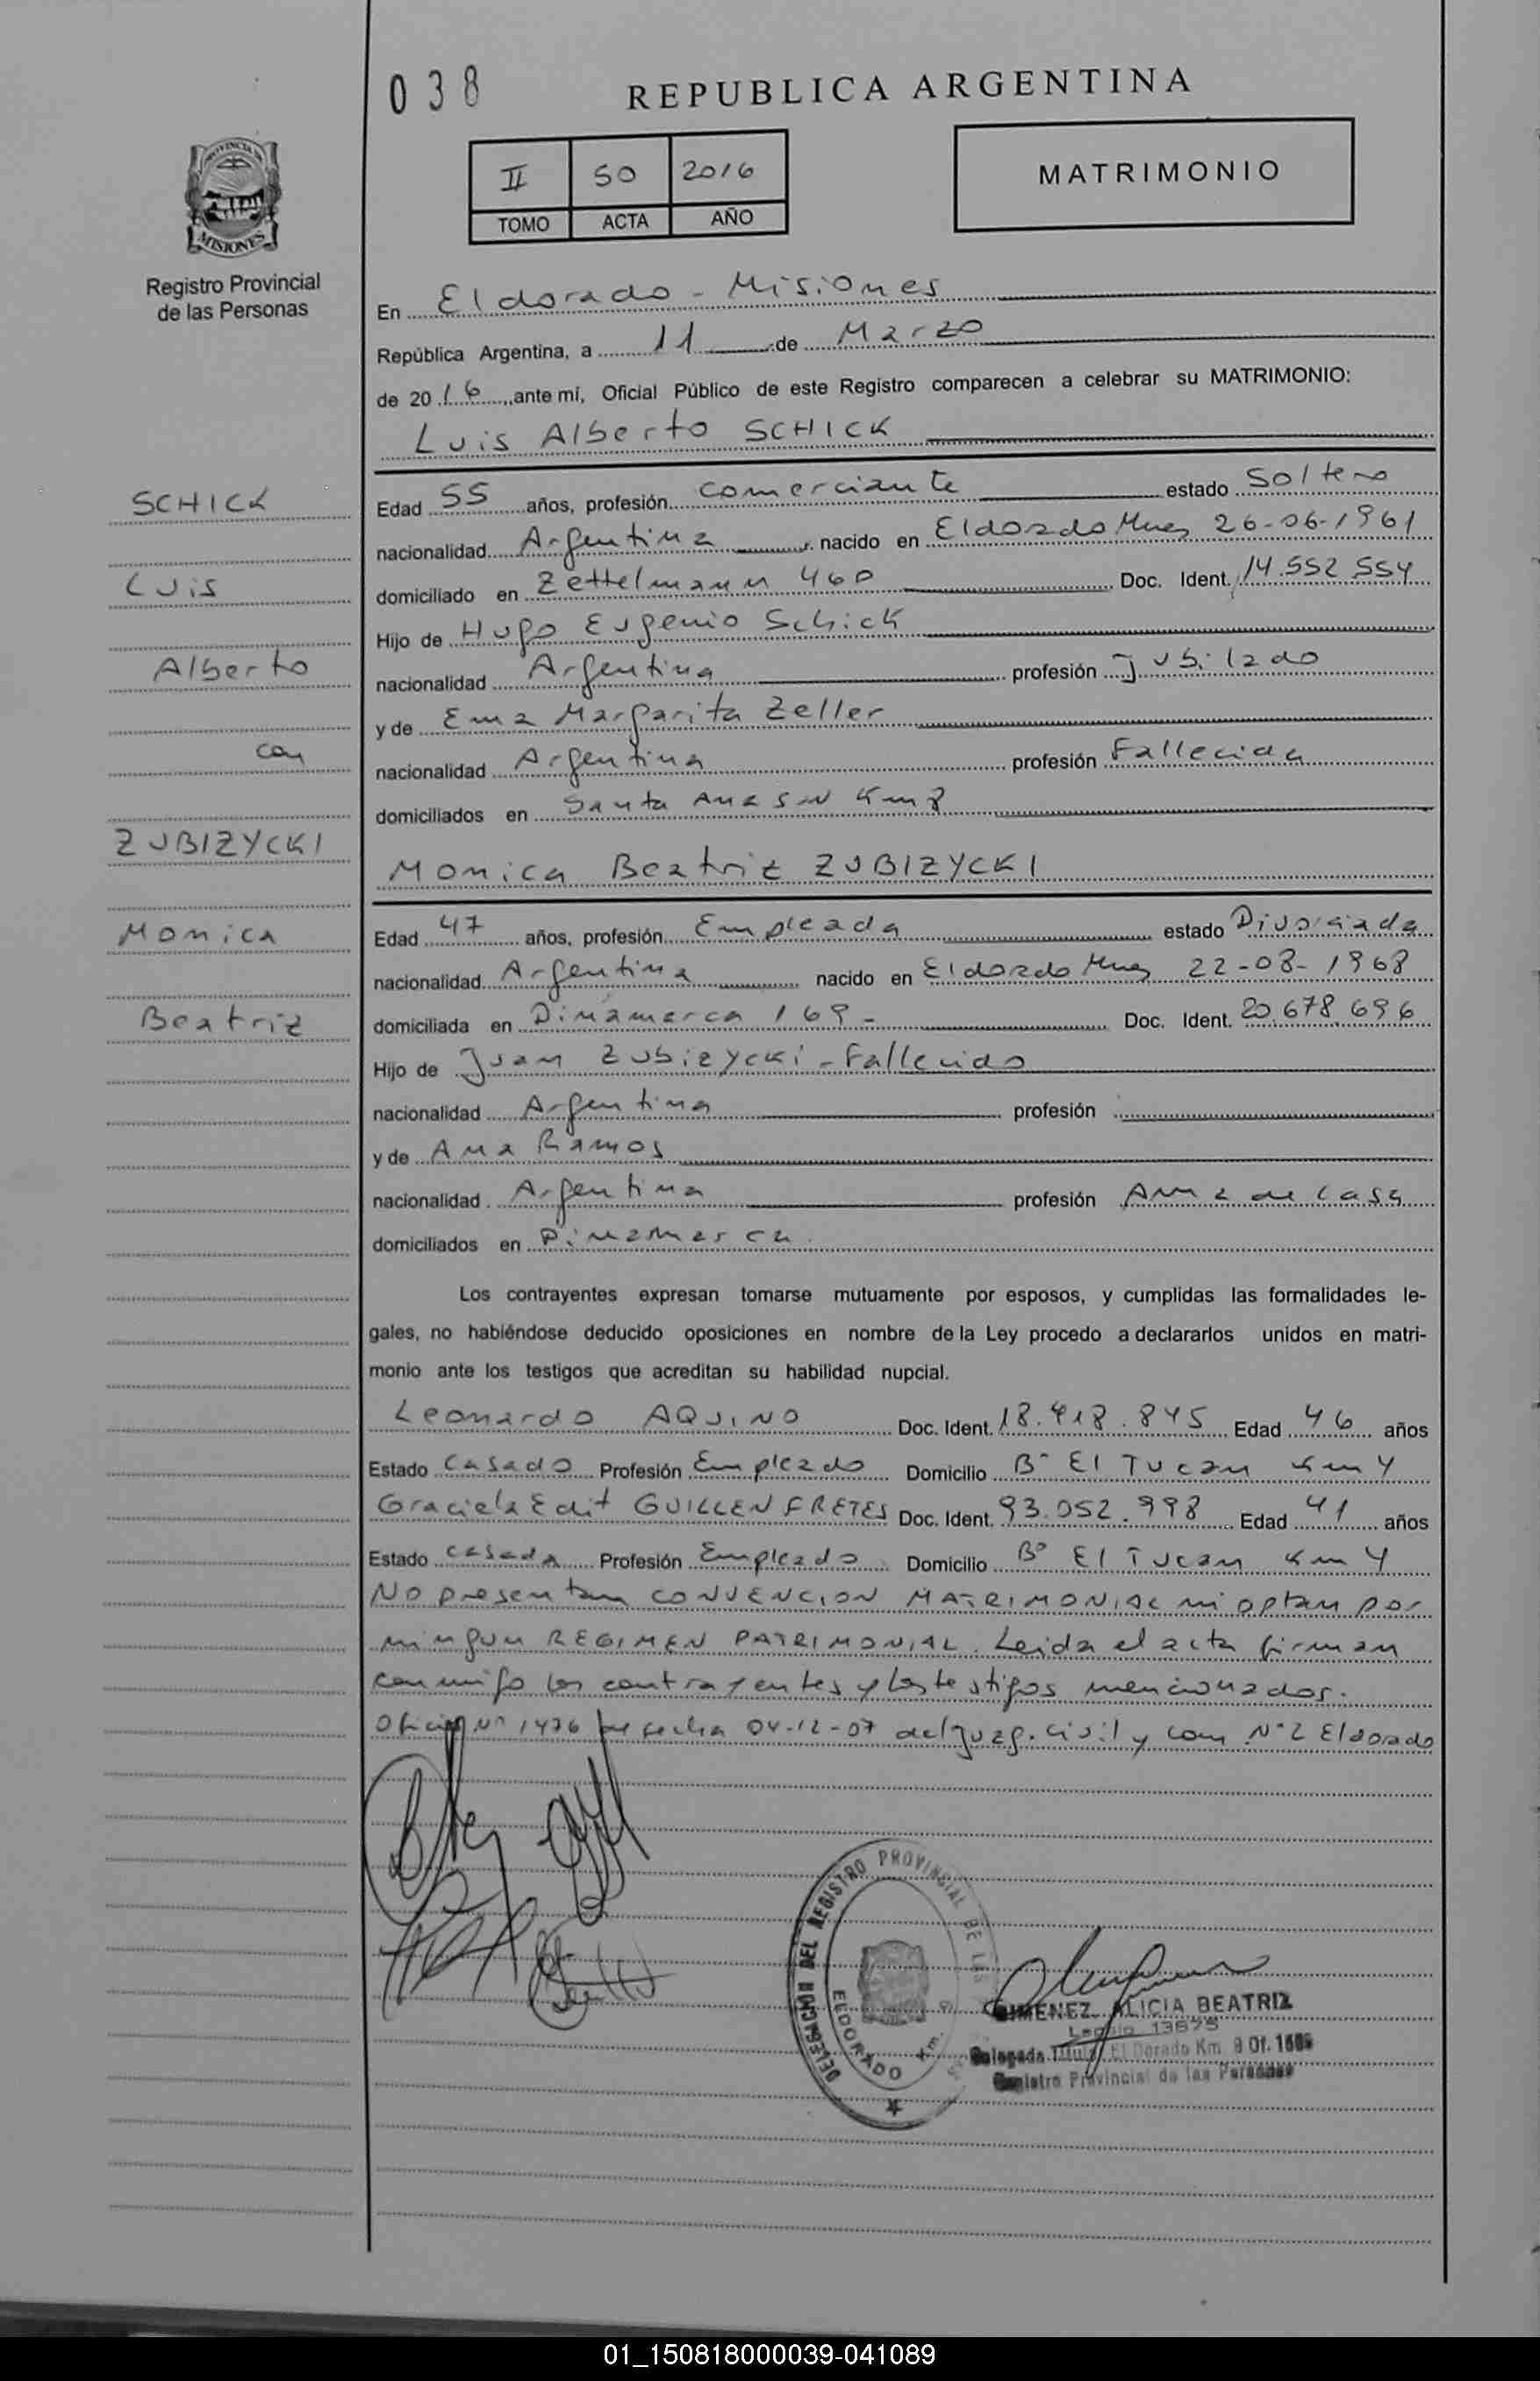 038
REPUBLICA ARGENTINA
II 50 2016
TOMO ACTA AÑO
MATRIMONIO
PROVINCIA DE
MISIONES
Registro Provincial
de las Personas
En Eldorado - Misiones
República Argentina, a 11 de Marzo
de 2016, ante mí, Oficial Público de este Registro comparecen a celebrar su MATRIMONIO:
Luis Alberto SCHICK
SCHICK
Luis
Alberto
con
ZUBIZYCKI
Monica
Beatriz
Edad 55 años, profesión comerciante estado Soltero
nacionalidad Argentina nacido en Eldorado Mnes 26-06-1961
domiciliado en Zettelmann 460 Doc. Ident. 14.552.554
Hijo de Hugo Eugenio Schick
nacionalidad Argentina profesión Jubilado
y de Ema Margarita Zeller
nacionalidad Argentina profesión Fallecida
domiciliados en Santa Ana S/N Km
Monica Beatriz ZUBIZYCKI
Edad 47 años, profesión Empleada estado Divorciada
nacionalidad Argentina nacido en Eldorado Mnes 22-08-1968
domiciliada en Dinamarca 169- Doc. Ident. 20.678.696
Hijo de Juan Zubizycki - Fallecido
nacionalidad Argentina profesión
y de Ana Ramos
nacionalidad Argentina profesión Ama de casa
domiciliados en Dinamarca
Los contrayentes expresan tomarse mutuamente por esposos, y cumplidas las formalidades le-
gales, no habiéndose deducido oposiciones en nombre de la Ley procedo a declararlos unidos en matri-
monio ante los testigos que acreditan su habilidad nupcial.
Leonardo AQUINO Doc. Ident. 18.418.845 Edad 46 años
Estado Casado Profesión Empleado Domicilio B° El Tucan Km 4
Graciela Edit GUILLEN FRETES Doc. Ident. 93.052.998 Edad 41 años
Estado casada Profesión Empleado Domicilio B° El Tucan Km 4
No presentan CONVENCION MATRIMONIAL ni optan por
ningun REGIMEN PATRIMONIAL. Leida el acta firman
conmigo los contrayentes y los testigos mencionados.
Oficio N° 1476 de fecha 04-12-07 del Juzg. Civil y Com N°2 Eldorado
DELEGACION DEL REGISTRO PROVINCIAL DE LAS
ELDORADO
GIMENEZ ALICIA BEATRIZ
Legajo 13675
Delegada Titular El Dorado Km. 9 Of.
Registro Provincial de las Personas
01_150818000039-041089